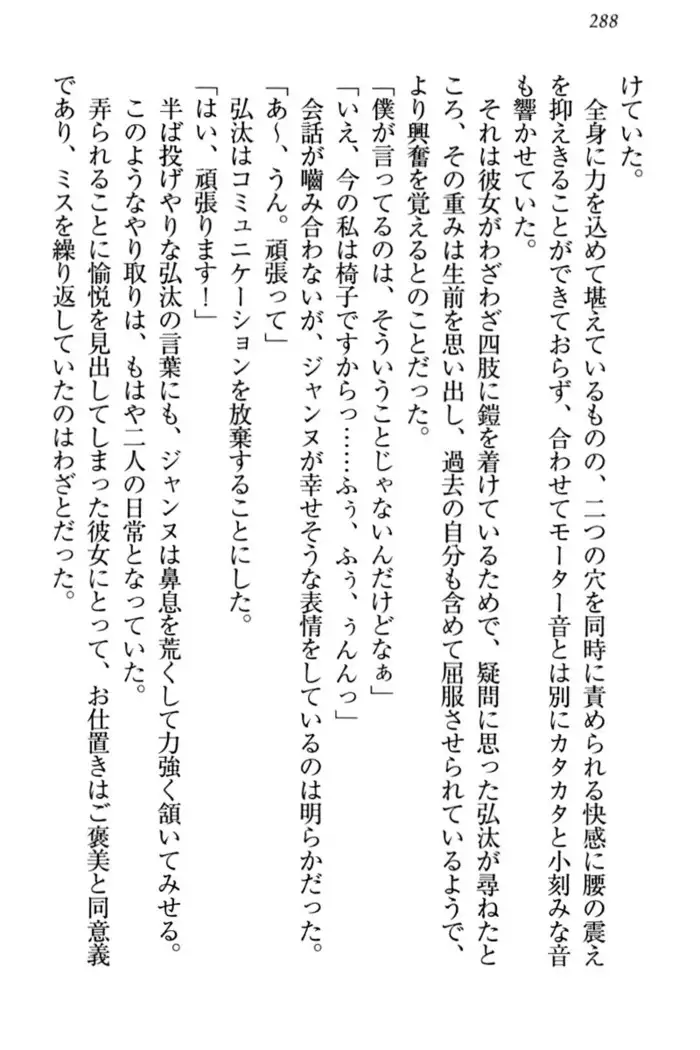 288
けていた。
　全身に力を込めて堪えているものの、二つの穴を同時に責められる快感に腰の震え
を抑えきることができておらず、合わせてモーター音とは別にカタカタと小刻みな音
も響かせていた。
　それは彼女がわざわざ四肢に鎧を着けているためで、疑問に思った弘汰が尋ねたと
ころ、その重みは生前を思い出し、過去の自分も含めて屈服させられているようで、
より興奮を覚えるとのことだった。
「僕が言ってるのは、そういうことじゃないんだけどなぁ」
「いえ、今の私は椅子ですからっ……ふぅ、ふぅ、ぅんんっ」
　会話が嚙み合わないが、ジャンヌが幸せそうな表情をしているのは明らかだった。
「あ〜、うん。頑張って」
　弘汰はコミュニケーションを放棄することにした。
「はい、頑張ります！」
　半ば投げやりな弘汰の言葉にも、ジャンヌは鼻息を荒くして力強く頷いてみせる。
　このようなやり取りは、もはや二人の日常となっていた。
　弄られることに愉悦を見出してしまった彼女にとって、お仕置きはご褒美と同意義
であり、ミスを繰り返していたのはわざとだった。